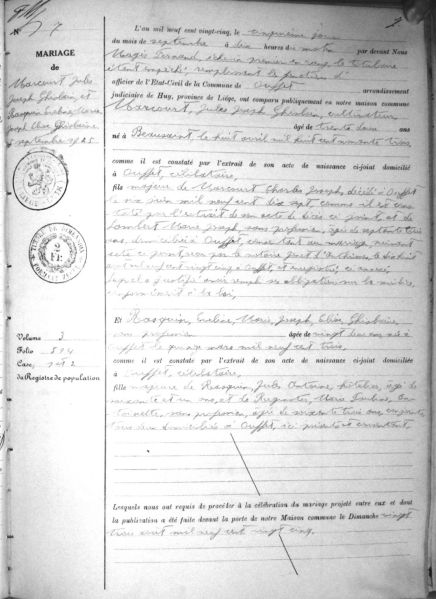 N° 7
MARIAGE
de
Marcourt Jules
Joseph Ghislain, et
Rasquin Eudoxe, Marie,
Joseph Elise Ghislaine
5 septembre 1925
Volume 3
Folio 514
Case n° 2
du Registre de population
7
L'an mil neuf cent vingt-cinq, le cinquième jour
du mois de septembre à dix heures du matin par devant Nous
officier de l'Etat-Civil de la Commune de Ouffet arrondissement
judiciaire de Huy, province de Liège, ont comparu publiquement en notre maison commune
Marcourt, Jules Joseph Ghislain, cultivateur
âgé de trente deux ans
né à le huit avril mil huit cent nonante trois
comme il est constaté par l'extrait de son acte de naissance ci-joint domicilié
à Ouffet, célibataire,
fils majeur de Marcourt Charles Joseph, décédé à Ouffet
le juin mil neuf cent dix sept, comme il est cons-
taté par l'extrait de son acte de décès ci joint, et de
Lambert Marie Joseph, sans profession, âgée de septante trois
ans, domiciliée à Ouffet, consentant au mariage suivant
acte ci joint, reçu par le notaire
août mil neuf cent vingt cinq à Ouffet, et enregistré,
lequel a justifié avoir rempli ses obligations sur la milice,
conformément à la loi,
Et Rasquin, Eudoxe, Marie, Joseph, Elise, Ghislaine,
sans profession âgée de vingt deux ans née à
Ouffet le mars mil neuf cent trois,
comme il est constaté par l'extrait de son acte de naissance ci-joint domiciliée
à Ouffet, célibataire,
fille majeure de Rasquin, Jules Antoine, hôtelier, âgé de
soixante et un ans, et de Marie Louise, An-
toinette, sans profession, âgée de soixante trois ans, conjoints,
tous deux domiciliés à Ouffet, ici présents et consentant,
Lesquels nous ont requis de procéder à la célébration du mariage projeté entre eux et dont
la publication a été faite devant la porte de notre Maison commune le Dimanche vingt
trois août mil neuf cent vingt cinq.